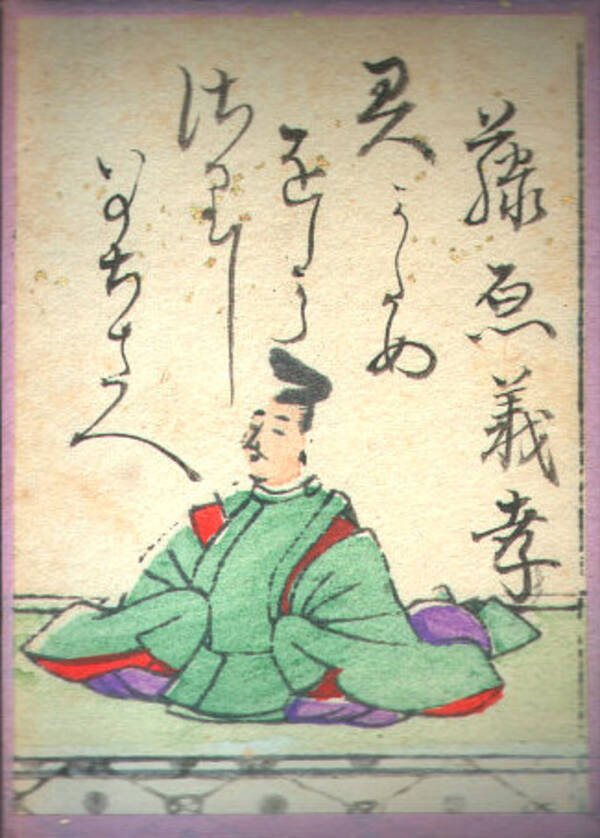 藤原義孝
君かため
をしから
さりし
いのちさへ